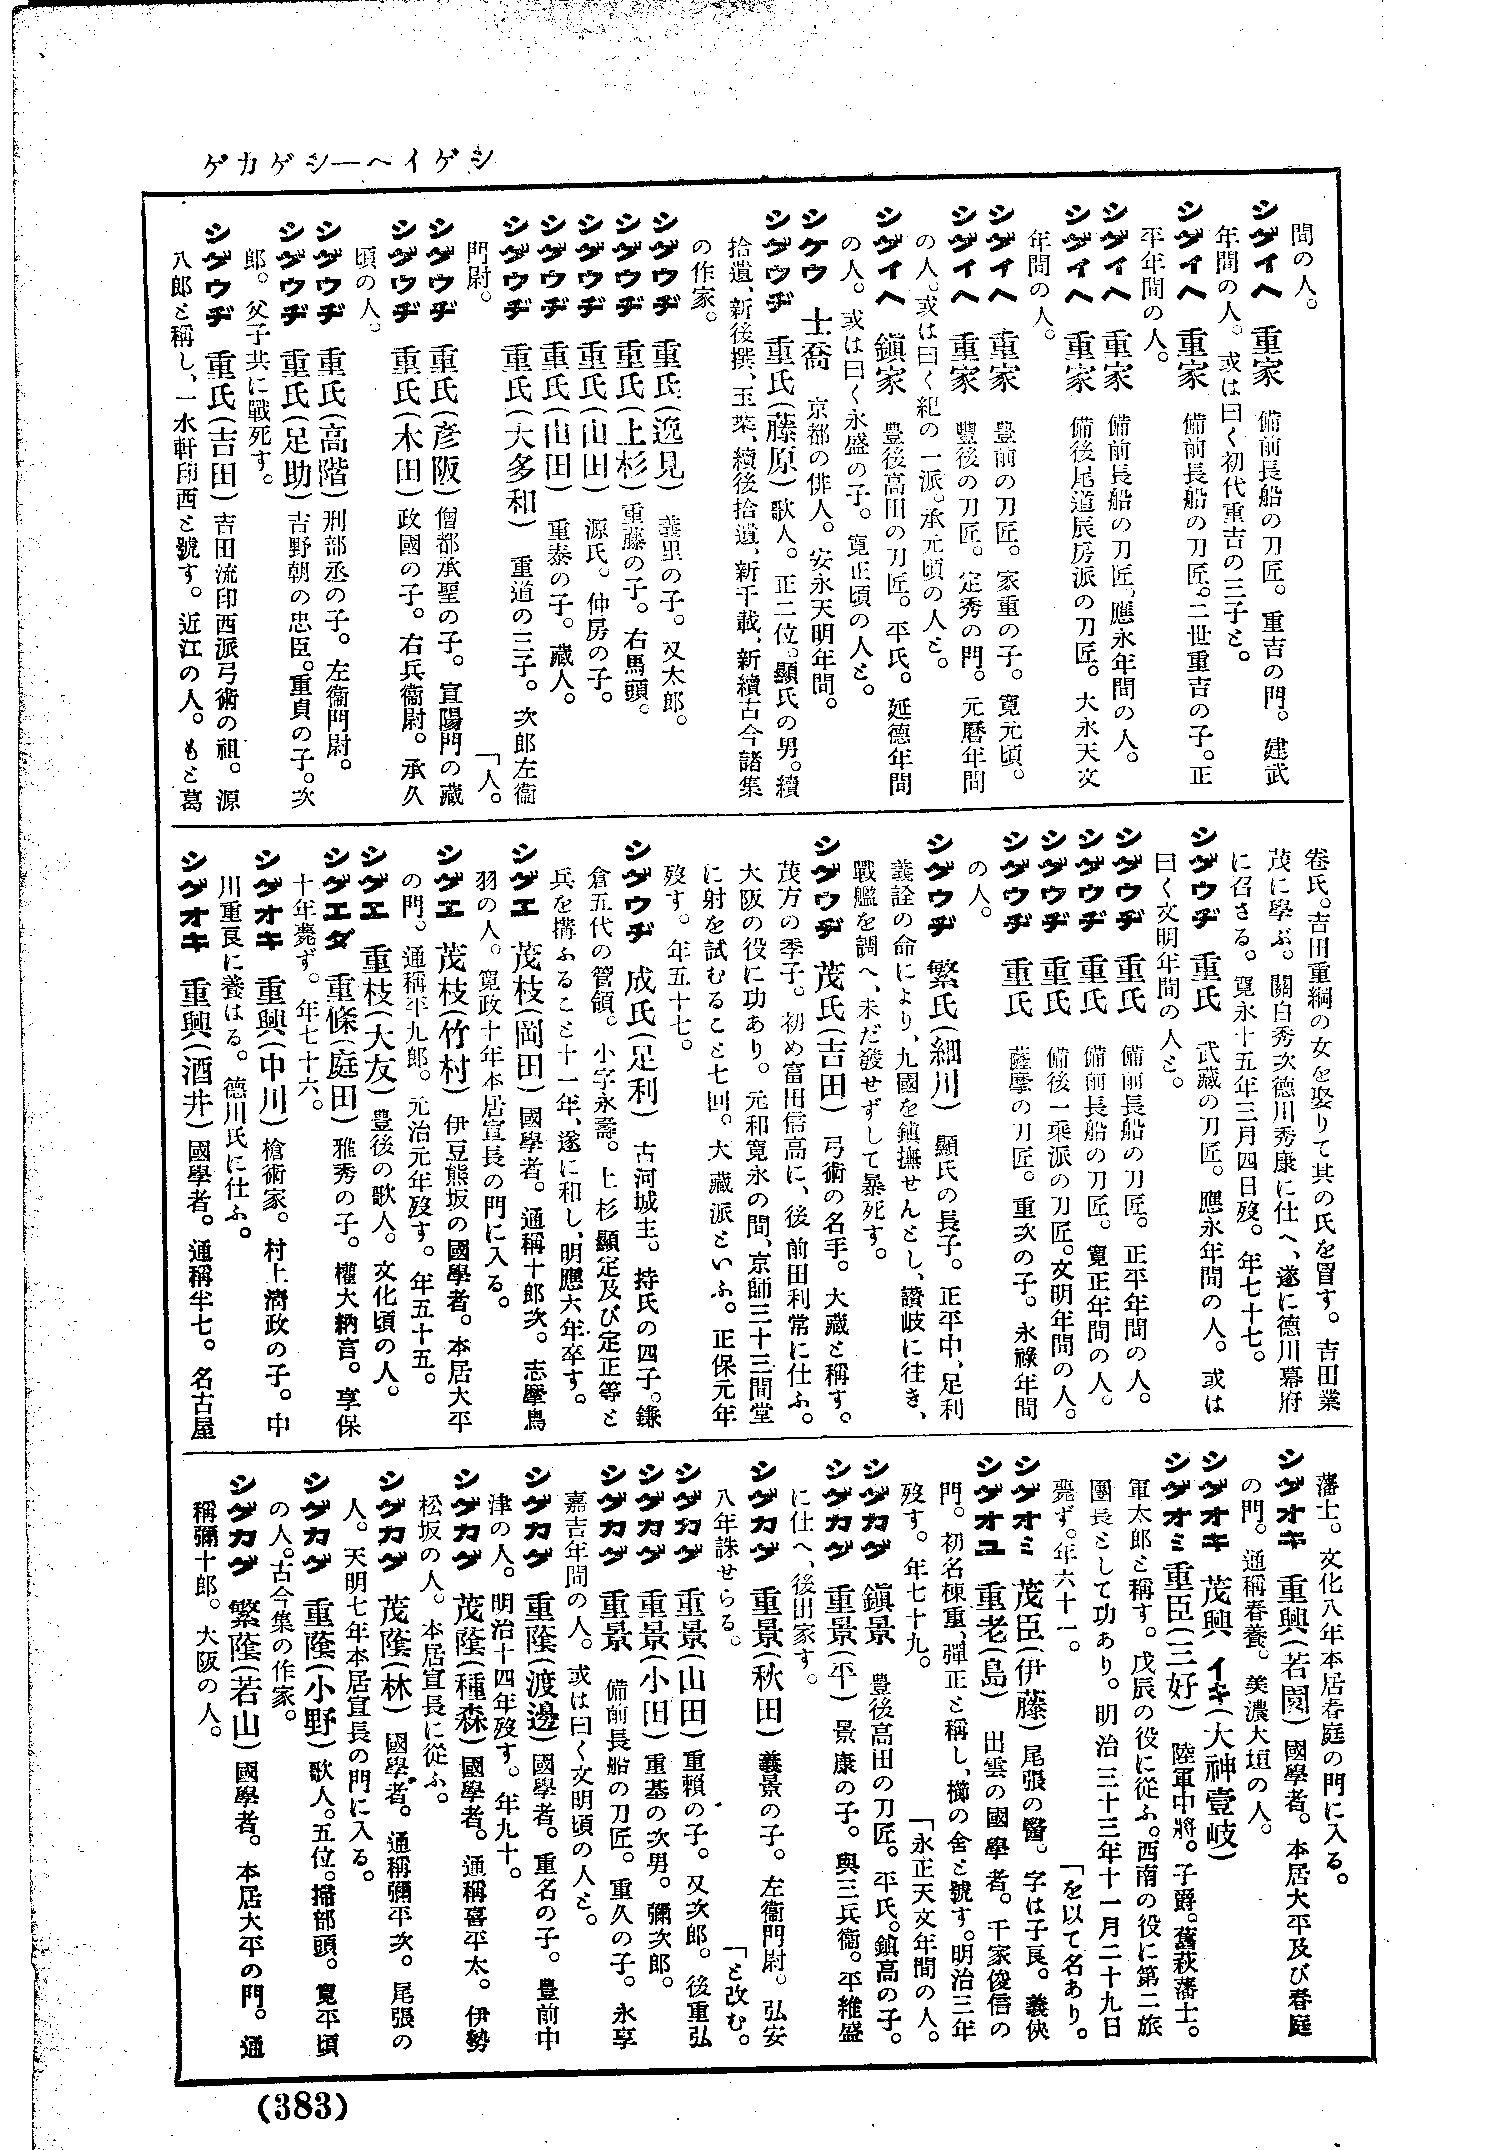 シゲイヘ―シゲカゲ
間の人。
シゲイヘ　重家　備前長船の刀匠。重吉の門。建武
年間の人。或は曰く初代重吉の三子と。
シゲイヘ　重家　備前長船の刀匠。二世重吉の子。正
平年間の人。
シゲイヘ　重家　備前長船の刀匠。應永年間の人。
シゲイヘ　重家　備後尾道辰房派の刀匠。大永天文
年間の人。
シゲイヘ　重家　豊前の刀匠。家重の子。寛元頃。
シゲイヘ　重家　豐後の刀匠。定秀の門。元曆年間
の人。或は曰く紀の一派。承元頃の人と。
シゲイヘ　鎭家　豊後高田の刀匠。平氏。延德年間
の人。或は曰く永盛の子。寛正頃の人と。
シケウ　士喬　京都の俳人。安永天明年間。
シゲウヂ　重氏(藤原)歌人。正二位。顯氏の男。續
拾遺、新後撰、玉葉、續後拾遺、新千載、新續古今諸集
の作家。
シゲウヂ　重氏(逸見)　義里の子。又太郎。
シゲウヂ　重氏(上杉)　重藤の子。右馬頭。
シゲウヂ　重氏(山田)　源氏。仲房の子。
シゲウヂ　重氏(山田)　重泰の子。藏人。
シゲウヂ　重氏(大多和)　重道の三子。次郎左衞
門尉。　「人。
シゲウヂ　重氏(彦阪)僧都承聖の子。宣陽門の藏
シゲウヂ　重氏(木田)　政國の子。右兵衞尉。承久
頃の人。
シゲウヂ　重氏(高階)刑部丞の子。左衞門尉。
シゲウヂ　重氏(足助)　吉野朝の忠臣。重貞の子。次
郎。父子共に戰死す。
シゲウヂ　重氏(吉田)吉田流印西派弓術の祖。源
八郎と稱し、一水軒印西と號す。近江の人。もと葛
卷氏。吉田重綱の女を娶りて其の氏を冒す。吉田業
茂に學ぶ。關白秀次德川秀康に仕へ、遂に德川幕府
に召さる。寛永十五年三月四日歿。年七十七。
シゲウヂ　重氏　武藏の刀匠。應永年間の人。或は
曰く文明年間の人と。
シゲウヂ　重氏　備前長船の刀匠。正平年間の人。
シゲウヂ　重氏　備前長船の刀匠。寛正年間の人。
シゲウヂ　重氏　備後一乘派の刀匠。文明年間の人。
シゲウヂ　重氏　薩摩の刀匠。重次の子。永祿年間
の人。
シゲウヂ　繁氏(細川)　顯氏の長子。正平中、足利
義詮の命により、九國を鎭撫せんとし、讃岐に往き、
戰艦を調へ、未だ發せずして暴死す。
シゲウヂ　茂氏(吉田)　弓術の名手。大藏と稱す。
茂方の季子。初め富田信高に、後前田利常に仕ふ。
大阪の役に功あり。元和寛永の間、京師三十三間堂
に射を試むること七回。大藏派といふ。正保元年
歿す。年五十七。
シゲウヂ　成氏(足利)　古河城主。持氏の四子。鎌
倉五代の管領。小字永壽。上杉顯定及び定正等と
兵を搆ふること十一年、遂に和し、明應六年卒す。
シゲエ　茂枝(岡田)國學者。通稱十郎次。志摩鳥
羽の人。寛政十年本居宣長の門に入る。
シゲエ　茂枝(竹村)　伊豆熊坂の國學者。本居大平
の門。通稱平九郎。元治元年歿す。年五十五。
シゲエ　重枝(大友)　豊後の歌人。文化頃の人。
シゲエダ　重條(庭田)　雅秀の子。權大納言。享保
十年薨ず。年七十六。
シゲオキ　重興(中川)　槍術家。村上濟政の子。中
川重良に養はる。德川氏に仕ふ。
シゲオキ　重興(酒井)國學者。通稱半七。名古屋
藩士。文化八年本居春庭の門に入る。
シゲオキ　重興(若園)國學者。本居大平及び春庭
の門。通稱春養。美濃大垣の人。
シゲオキ　茂興　イキ(大神壹岐)
シゲオミ　重臣(三好)　陸軍中將。子爵。舊萩藩士。
軍太郎と稱す。戊辰の役に從ふ。西南の役に第二旅
團長として功あり。明治三十三年十一月二十九日
薨ず。年六十一。　「を以て名あり。
シゲオミ　茂臣(伊藤)尾張の醫。字は子長。義俠
シゲオユ　重老(島)　出雲の國學者。千家俊信の
門。初名棟重、彈正と稱し、櫛の舍と號す。明治三年
歿す。年七十九。　「永正天文年間の人。
シゲカゲ　鎭景　豊後高田の刀匠。平氏。鎭高の子。
シゲカゲ　重景(平)　景康の子。與三兵衞。平維盛
に仕へ、後出家す。
シゲカゲ　重景(秋田)義景の子。左衞門尉。弘安
八年誅せらる。　「と改む。
シゲカゲ　重景(山田)重賴の子。又次郎。後重弘
シゲカゲ　重景(小田)重基の次男。彌次郎。
シゲカゲ　重景　備前長船の刀匠。重久の子。永享
嘉吉年間の人。或は曰く文明頃の人と。
シゲカゲ　重蔭(渡邊)國學者。重名の子。豊前中
津の人。明治十四年歿す。年九十。
シゲカゲ　茂蔭(種森)國學者。通稱喜平太。伊勢
松坂の人。本居宣長に從ふ。
シゲカゲ　茂蔭(林)　國學者。通稱彌平次。尾張の
人。天明七年本居宣長の門に入る。
シゲカゲ　重蔭(小野)歌人。五位。掃部頭。寛平頃
の人。古今集の作家。
シゲカゲ　繁蔭(若山)國學者。本居大平の門。通
稱彌十郎。大阪の人。
(383)